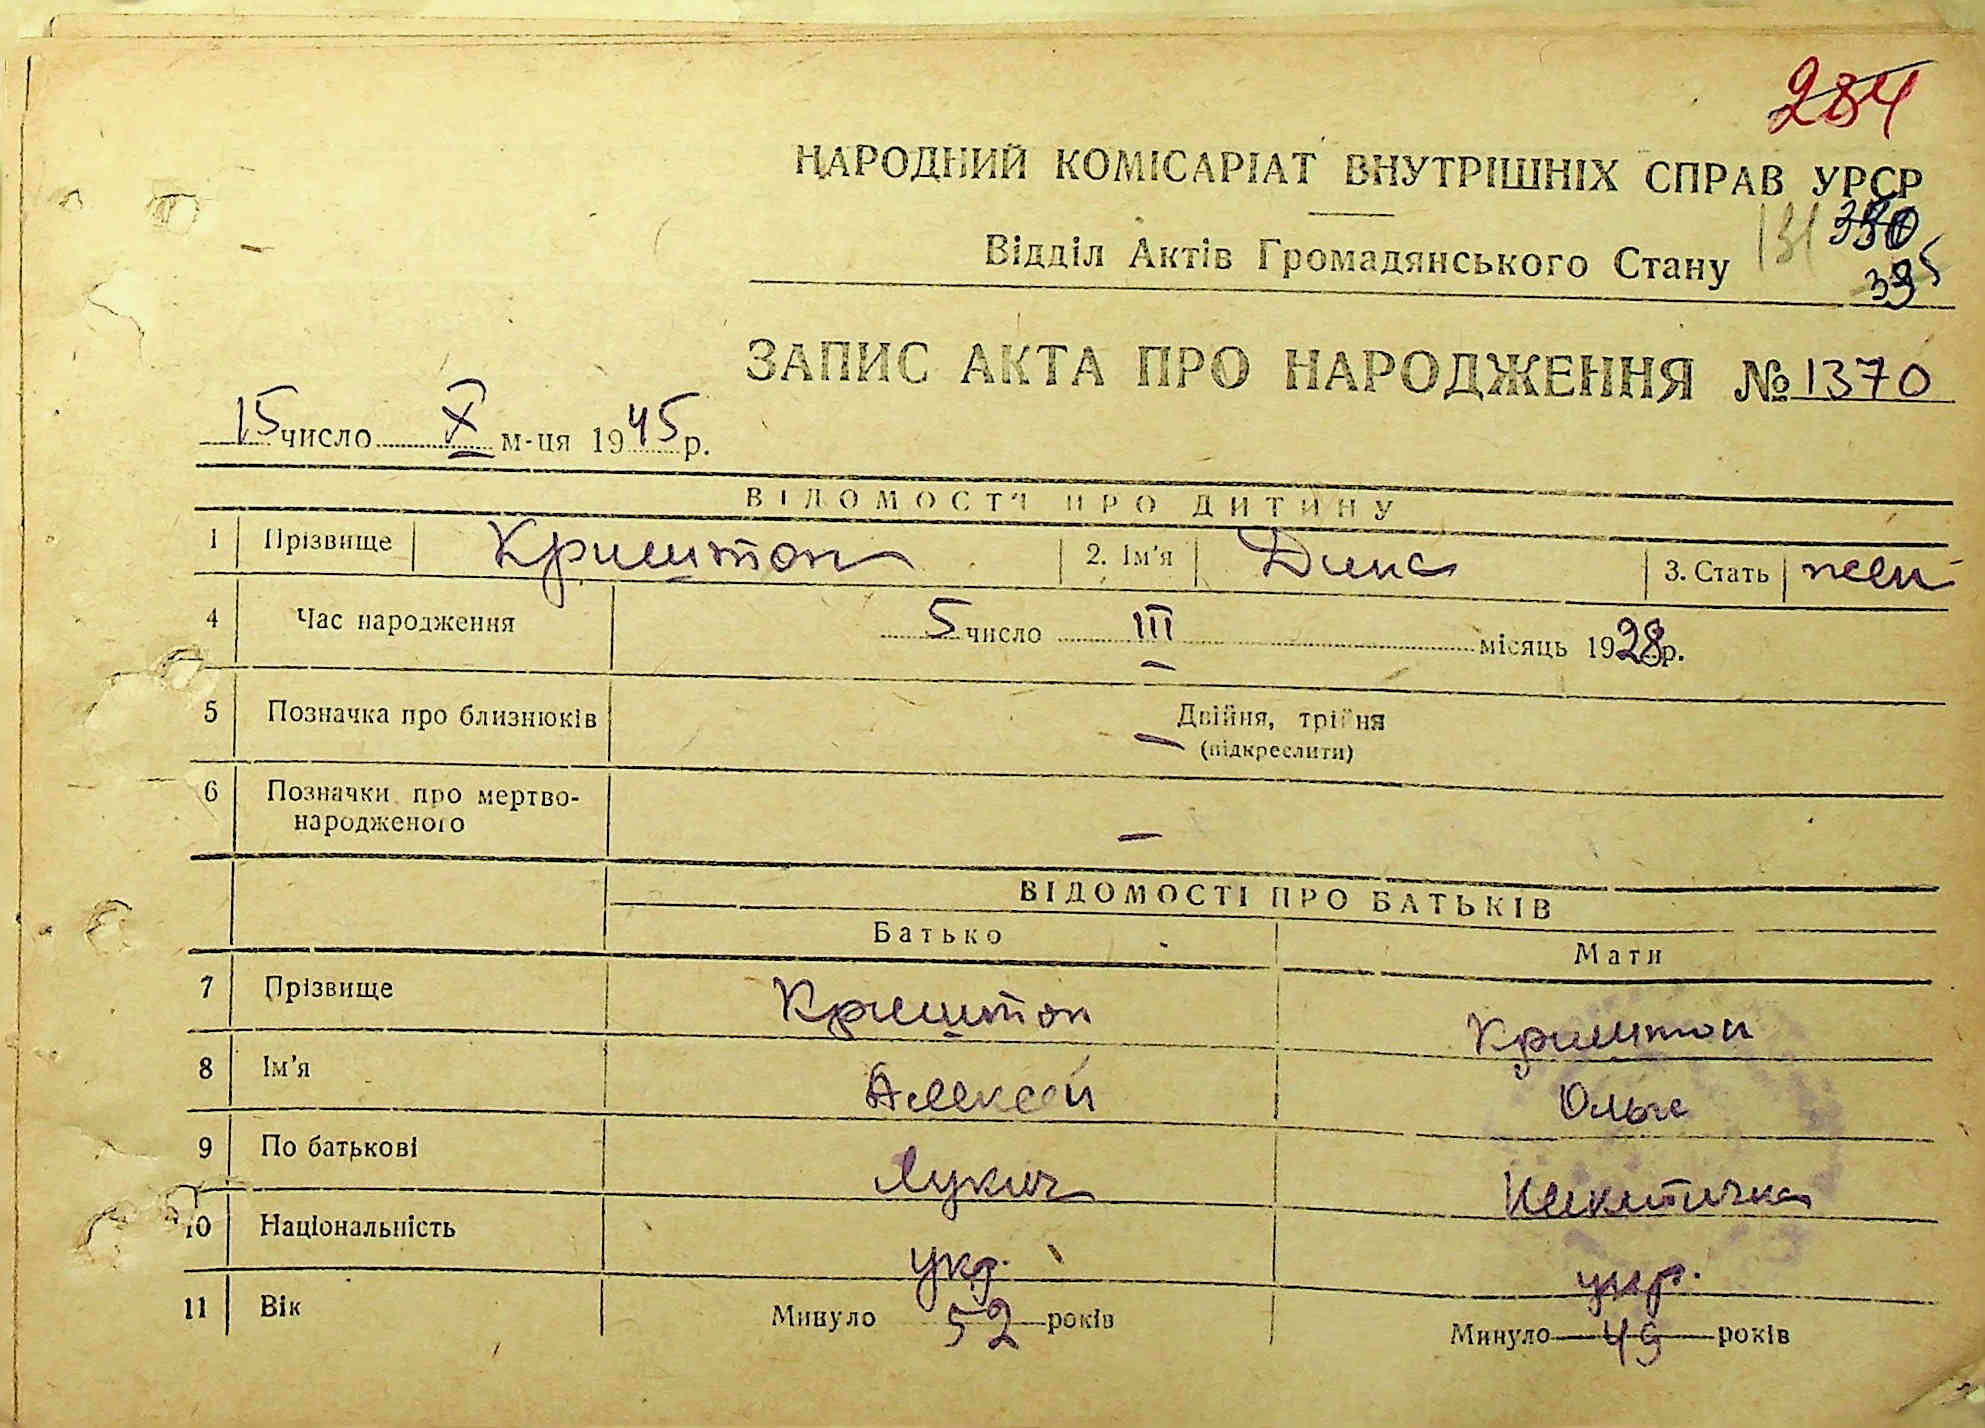 284
НАРОДНИЙ КОМІСАРІАТ ВНУТРІШНІХ СПРАВ УРСР
131
Відділ Актів Громадянського Стану
395
ЗАПИС АКТА ПРО НАРОДЖЕННЯ № 1370
15 число X м-ця 1945 р.
ВІДОМОСТІ ПРО ДИТИНУ
1 Прізвище Криштоп 2. Ім'я Дина 3. Стать жен
4 Час народження 5 число III місяць 1928 р.
5 Позначка про близнюків Двійня, трійня
(підкреслити) —
6 Позначки про мертво-
народженого —
ВІДОМОСТІ ПРО БАТЬКІВ
Батько Мати
7 Прізвище Криштоп Криштоп
8 Ім'я Алексей Ольга
9 По батькові Лукич Никитична
10 Національність укр. укр.
11 Вік Минуло 52 років Минуло 49 років